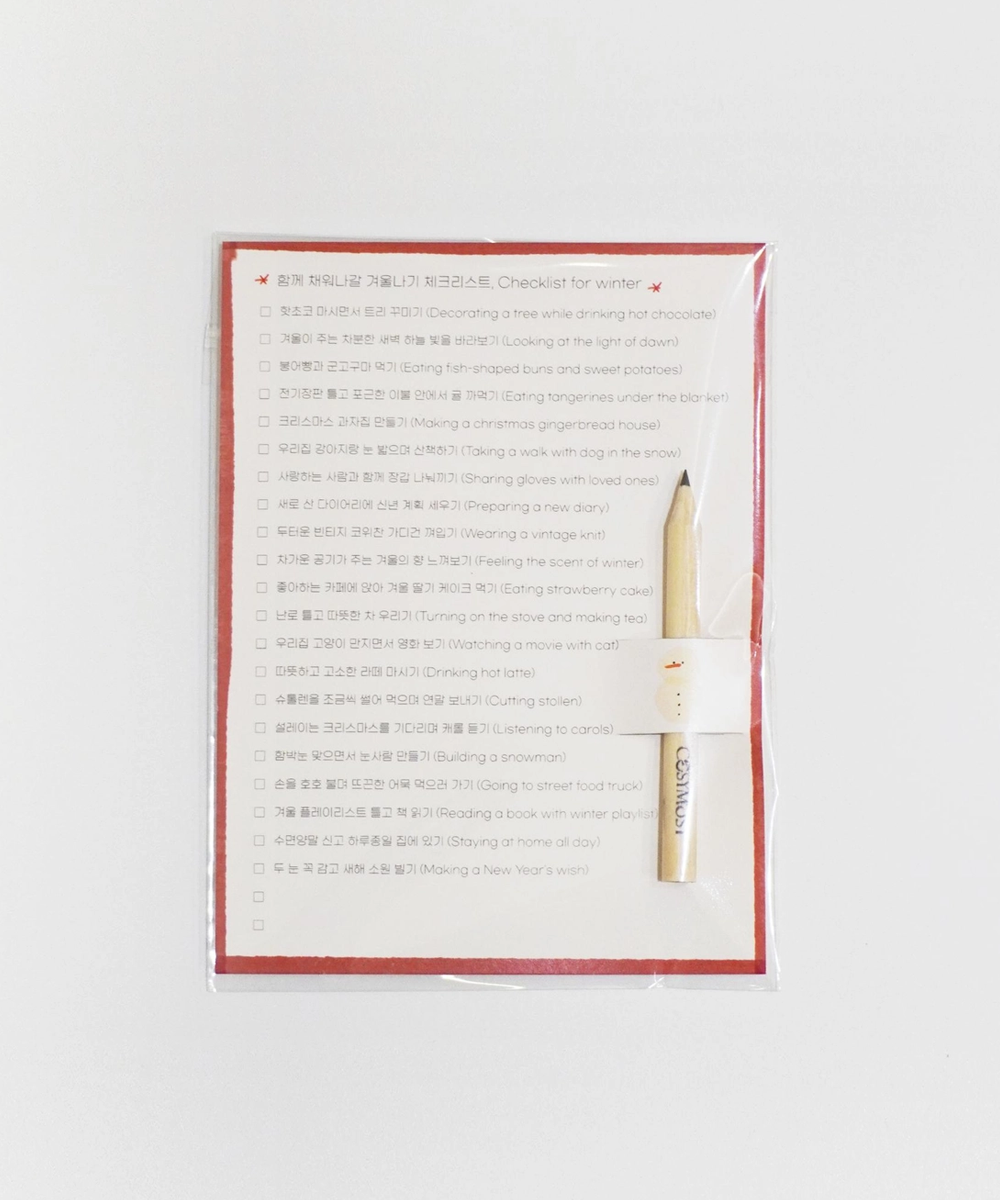 함께 채워나갈 겨울나기 체크리스트, Checklist for winter
핫초코 마시면서 트리 꾸미기 (Decorating a tree while drinking hot chocolate)
겨울이 주는 차분한 새벽 하늘 빛을 바라보기 (Looking at the light of dawn)
붕어빵과 군고구마 먹기 (Eating fish-shaped buns and sweet potatoes)
전기장판 틀고 포근한 이불 안에서 귤 까먹기 (Eating tangerines under the blanket)
크리스마스 과자집 만들기 (Making a christmas gingerbread house)
우리집 강아지랑 눈 밟으며 산책하기 (Taking a walk with dog in the snow)
사랑하는 사람과 함께 장갑 나눠끼기 (Sharing gloves with loved ones)
새로 산 다이어리에 신년 계획 세우기 (Preparing a new diary)
두터운 빈티지 코위찬 가디건 껴입기 (Wearing a vintage knit)
차가운 공기가 주는 겨울의 향 느껴보기 (Feeling the scent of winter)
좋아하는 카페에 앉아 겨울 딸기 케이크 먹기 (Eating strawberry cake)
난로 틀고 따뜻한 차 우리기 (Turning on the stove and making tea)
우리집 고양이 만지면서 영화 보기 (Watching a movie with cat)
따뜻하고 고소한 라떼 마시기 (Drinking hot latte)
슈톨렌을 조금씩 썰어 먹으며 연말 보내기 (Cutting stollen)
설레이는 크리스마스를 기다리며 캐롤 듣기 (Listening to carols)
함박눈 맞으면서 눈사람 만들기 (Building a snowman)
손을 호호 불며 뜨끈한 어묵 먹으러 가기 (Going to street food truck)
겨울 플레이리스트 틀고 책 읽기 (Reading a book with winter playlist)
수면양말 신고 하루종일 집에 있기 (Staying at home all day)
두 눈 꼭 감고 새해 소원 빌기 (Making a New Year's wish)
COSYMOST